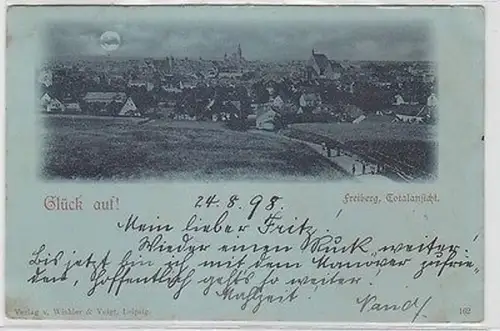 Glück auf!
Freiberg, Totalansicht.
24.8.98.
Mein lieber Fritz!
Wieder einen Ruck weiter!
Bis jetzt bin ich mit dem Manöver zufrie-
den, hoffentlich geht's so weiter.
Mahlzeit!
Verlag v. Winkler & Voigt, Leipzig.
102